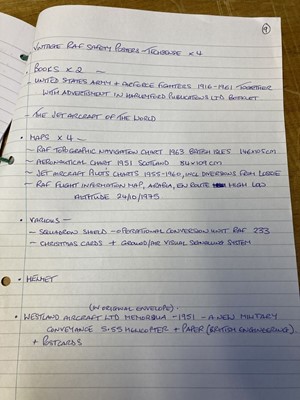 9
• VINTAGE RAF SAFETY POSTERS - TECHSENSE x 4
• BOOKS x 2 —
• UNITED STATES ARMY + AIRFORCE FIGHTERS 1916-1961 TOGETHER
WITH ADVERTISMENT IN HARLEYFORD PUBLICATIONS LTD BOOKLET
- THE JET AIRCRAFT OF THE WORLD
• MAPS x 4 —
- RAF TOPOGRAPHIC NAVIGATION CHART 1963 BRITISH ISLES 146x105cm
- AERONAUTICAL CHART 1951 SCOTLAND 84x109cm
- JET AIRCRAFT PILOTS CHARTS 1955-1960, INCL DIVERSIONS FROM
- RAF FLIGHT INFORMATION MAP, ARABIA, EN ROUTE HIGH LOW
ALTITUDE 24/10/1975
• VARIOUS —
- SQUADRON SHIELD - OPERATIONAL CONVERSION UNIT RAF 233
- CHRISTMAS CARDS + GROUND/AIR VISUAL SIGNALLING SYSTEM
• HELMET
(IN ORIGINAL ENVELOPE).
• WESTLAND AIRCRAFT LTD MEMORABILIA - 1951 - A NEW MILITARY
CONVEYANCE S-55 HELICOPTER + PAPER (BRITISH ENGINEERING)
+ POSTCARDS